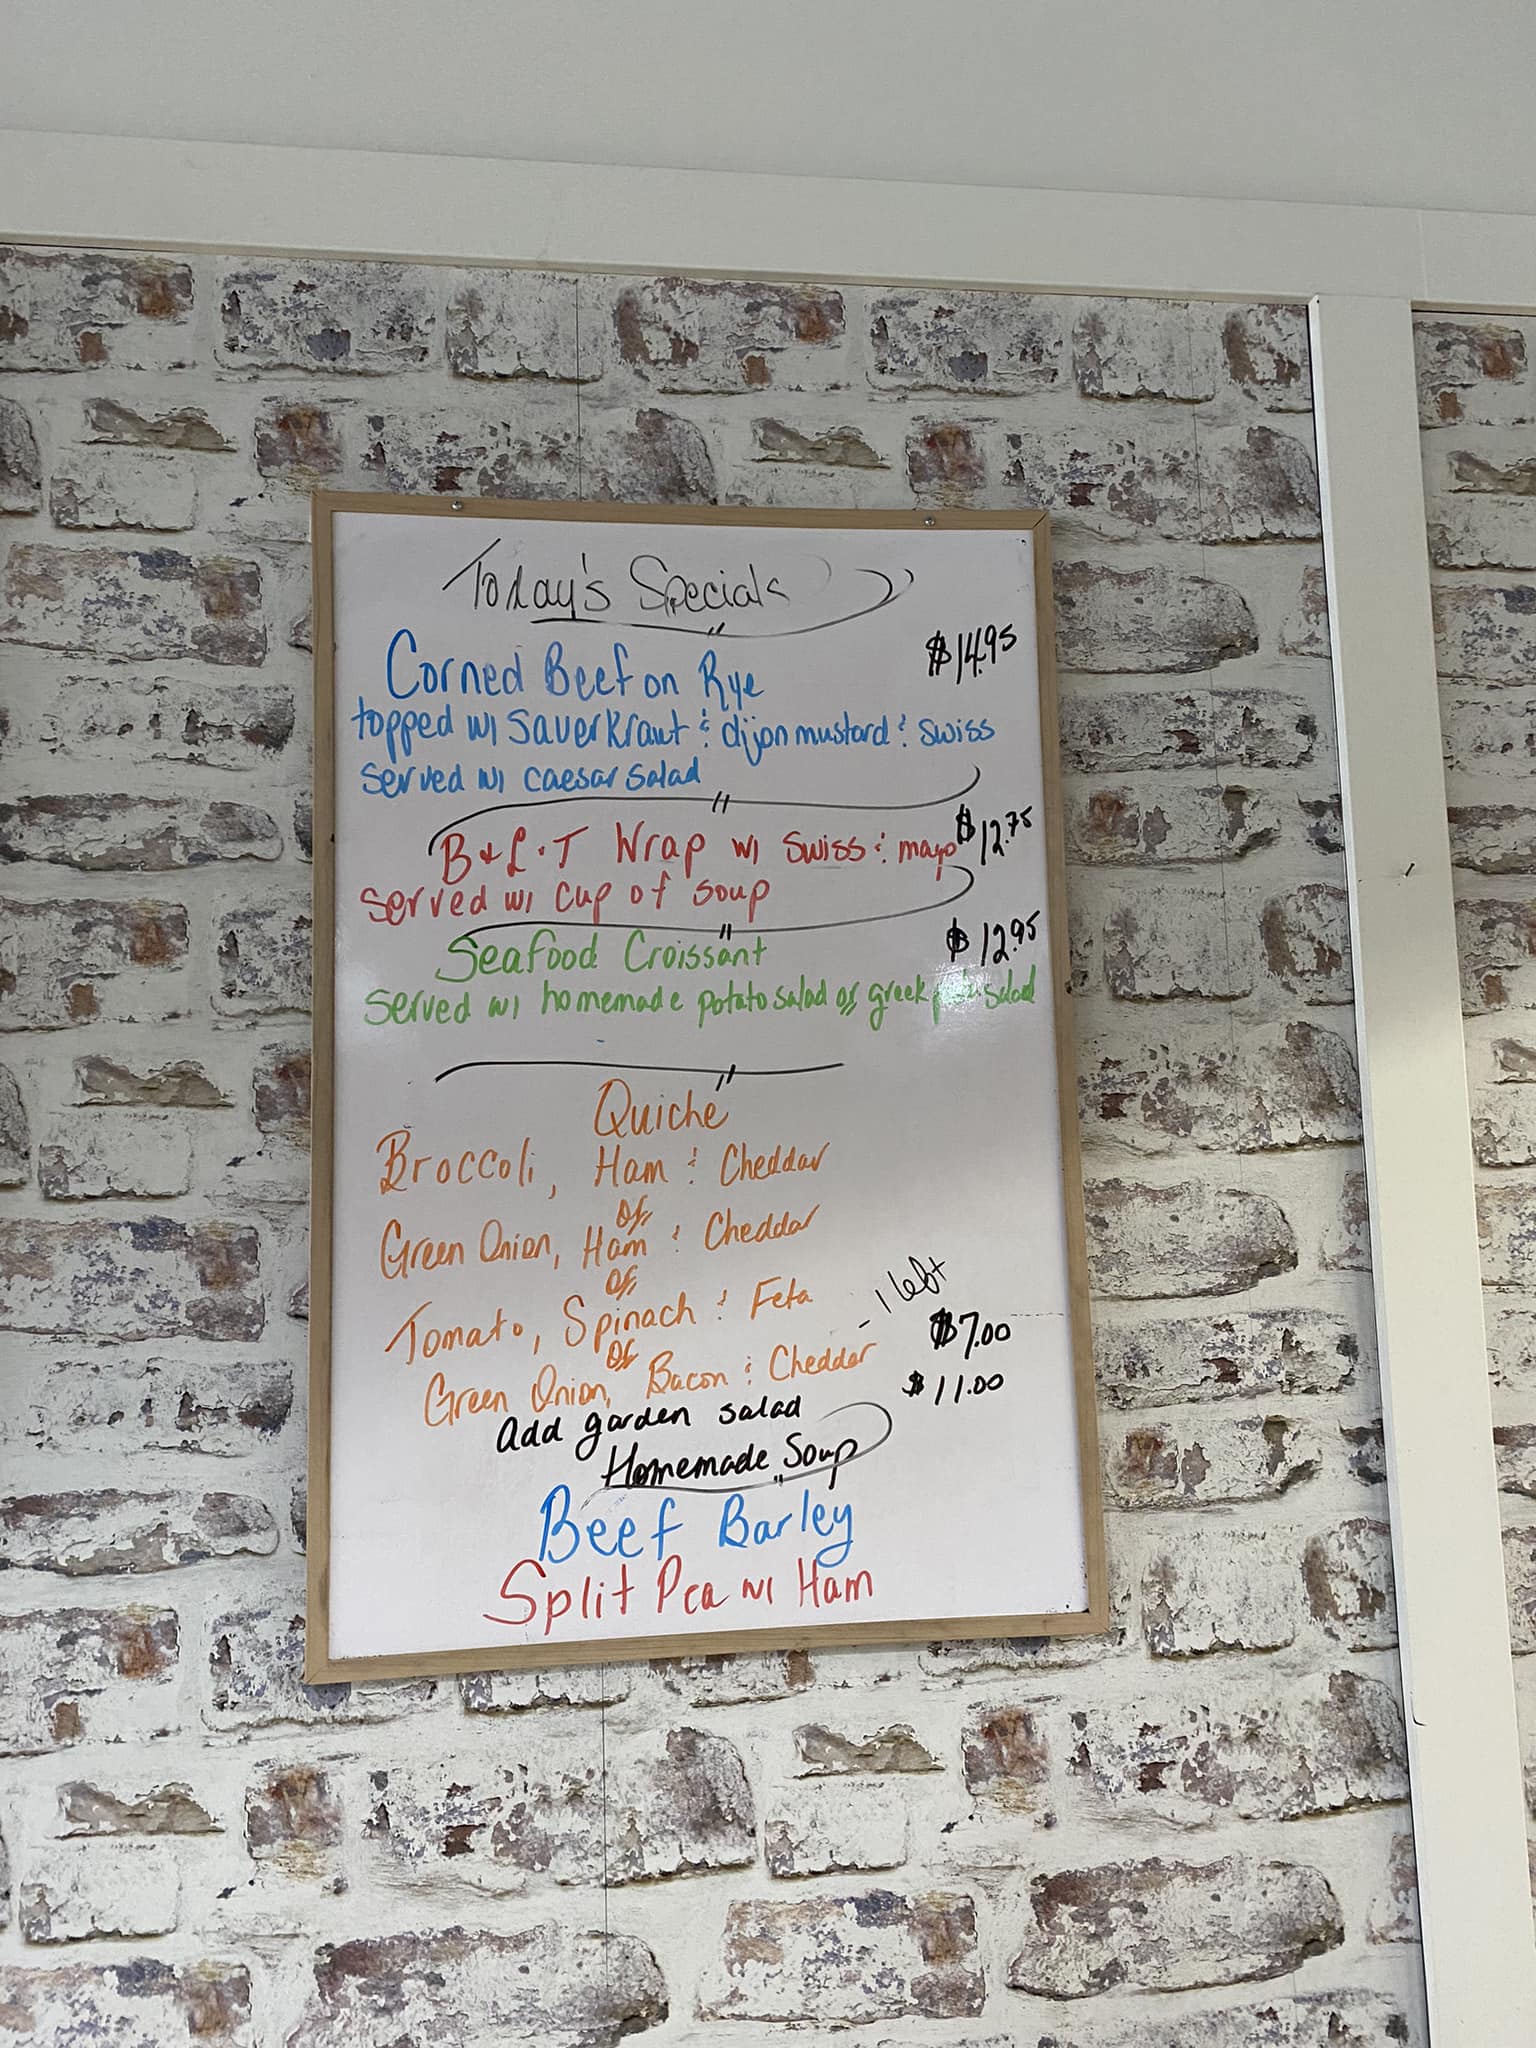 Today's Specials
Corned Beef on Rye $14.95
topped w/ Sauerkraut & dijon mustard & swiss
served w/ caesar salad
B + L + T Wrap w/ swiss & mayo $12.75
served w/ cup of soup
Seafood Croissant $12.95
served w/ homemade potato salad or greek salad
Quiche
Broccoli, Ham & Cheddar
or
Green Onion, Ham & Cheddar
or
Tomato, Spinach & Feta - 1 left
or
Green Onion, Bacon & Cheddar $7.00
Add garden salad $11.00
Homemade Soup
Beef Barley
Split Pea w/ Ham